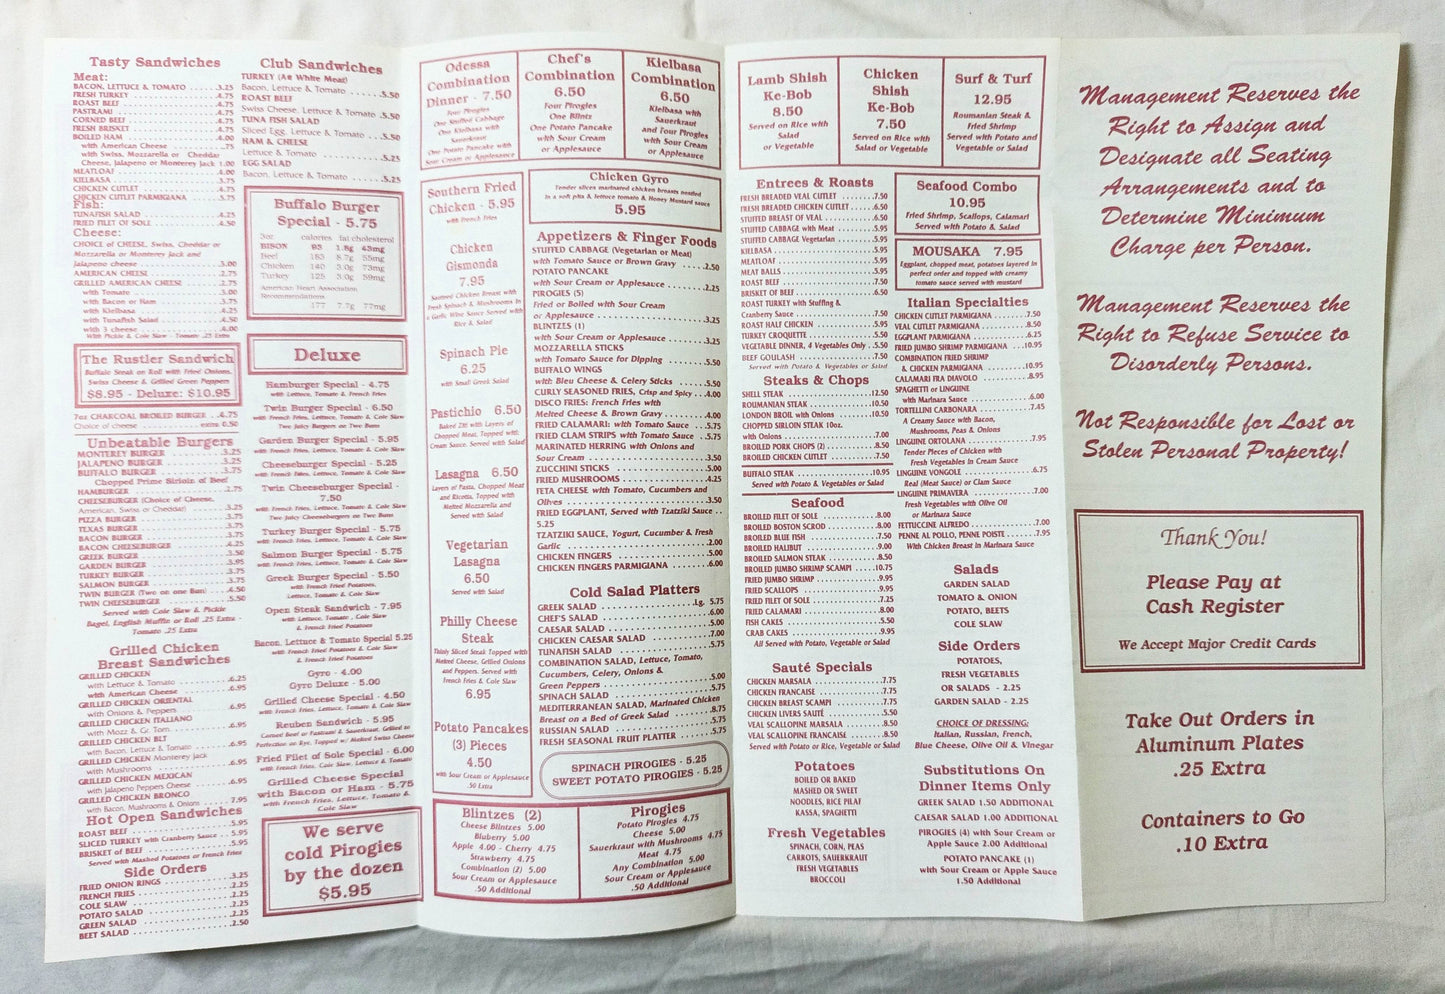 Tasty Sandwiches
Meat:
BACON, LETTUCE & TOMATO ......3.25
FRESH TURKEY ......4.75
ROAST BEEF ......4.75
PASTRAMI ......4.75
CORNED BEEF ......4.75
FRESH BRISKET ......4.75
BOILED HAM ......4.00
with American Cheese ......75
with Swiss, Mozzarella or Cheddar
Cheese, Jalapeno or Monterey Jack 1.00
MEATLOAF ......4.00
KIELBASA ......3.75
CHICKEN CUTLET ......4.75
CHICKEN CUTLET PARMIGIANA ......5.75
Fish:
TUNAFISH SALAD ......4.25
FRIED FILET OF SOLE ......4.50
Cheese:
CHOICE of CHEESE, Swiss, Cheddar or
Mozzarella or Monterey Jack and
Jalapeno cheese ......3.00
AMERICAN CHEESE ......2.75
GRILLED AMERICAN CHEESE ......2.75
with Tomato ......3.00
with Bacon or Ham ......3.75
with Kielbasa ......4.25
with Tunafish Salad ......4.50
with 3 cheese ......4.00
With Pickle & Cole Slaw - Tomato .25 Extra
The Rustler Sandwich
Buffalo Steak on Roll with Fried Onions,
Swiss Cheese & Grilled Green Peppers
$8.95 - Deluxe: $10.95
7oz CHARCOAL BROILED BURGER ..4.75
Choice of cheese ......extra .0.50
Unbeatable Burgers
MONTEREY BURGER ......3.25
JALAPENO BURGER ......3.25
BUFFALO BURGER ......3.75
Chopped Prime Sirloin of Beef
HAMBURGER ......2.75
CHEESEBURGER (Choice of Cheese,
American, Swiss or Cheddar) ......3.25
PIZZA BURGER ......3.25
TEXAS BURGER ......3.75
BACON BURGER ......3.75
BACON CHEESEBURGER ......4.25
GREEK BURGER ......3.50
GARDEN BURGER ......3.95
TURKEY BURGER ......3.75
SALMON BURGER ......3.75
TWIN BURGER (Two on one Bun) ......4.50
TWIN CHEESEBURGER ......5.50
Served with Cole Slaw & Pickle
Bagel, English Muffin or Roll .25 Extra -
Tomato .25 Extra
Grilled Chicken
Breast Sandwiches
GRILLED CHICKEN
with Lettuce & Tomato ......6.25
with American Cheese ......6.95
GRILLED CHICKEN ORIENTAL
with Onions & Peppers ......6.95
GRILLED CHICKEN ITALIANO
with Mozz & Gr. Tom. ......6.95
GRILLED CHICKEN BLT
with Bacon, Lettuce & Tomato ......6.95
GRILLED CHICKEN Monterey Jack
with Mushrooms ......6.95
GRILLED CHICKEN MEXICAN
with Jalapeno Peppers Cheese ......6.95
GRILLED CHICKEN BRONCO
with Bacon, Mushrooms & Onions ....7.95
Hot Open Sandwiches
ROAST BEEF ......5.95
SLICED TURKEY with Cranberry Sauce ..5.95
BRISKET of BEEF ......5.95
Served with Mashed Potatoes or French Fries
Side Orders
FRIED ONION RINGS ......3.25
FRENCH FRIES ......2.25
COLE SLAW ......2.25
POTATO SALAD ......2.25
GREEN SALAD ......2.25
BEET SALAD ......2.50
Club Sandwiches
TURKEY (All White Meat)
Bacon, Lettuce & Tomato ......5.50
ROAST BEEF
Swiss Cheese, Lettuce & Tomato ....5.50
TUNA FISH SALAD
Sliced Egg, Lettuce & Tomato ....5.50
HAM & CHEESE
Lettuce & Tomato ......5.25
EGG SALAD
Bacon, Lettuce & Tomato ......5.25
Buffalo Burger
Special - 5.75
3oz calories fat cholesterol
BISON 93 1.8g 43mg
Beef 183 8.7g 55mg
Chicken 140 3.0g 73mg
Turkey 125 3.0g 59mg
American Heart Association
Recommendations
177 7.7g 77mg
Deluxe
Hamburger Special - 4.75
with Lettuce, Tomato & French Fries
Twin Burger Special - 6.50
with French Fries, Lettuce, Tomato & Cole Slaw
Two Juicy Burgers on Two Buns
Garden Burger Special - 5.95
with French Fries, Lettuce, Tomato & Cole Slaw
Cheeseburger Special - 5.25
with French Fries, Lettuce, Tomato & Cole Slaw
Twin Cheeseburger Special -
7.50
with French Fries, Lettuce, Tomato & Cole Slaw
Two Juicy Cheeseburgers on Two Buns
Turkey Burger Special - 5.75
with French Fries, Lettuce, Tomato & Cole Slaw
Salmon Burger Special - 5.75
with French Fries, Lettuce, Tomato & Cole Slaw
Greek Burger Special - 5.50
with French Fried Potatoes,
Lettuce, Tomato & Cole Slaw
Open Steak Sandwich - 7.95
with Lettuce, Tomato, Cole Slaw
& French Fried Potatoes
Bacon, Lettuce & Tomato Special 5.25
with French Fries, Lettuce, Tomato & Cole Slaw
& French Fried Potatoes
Gyro - 4.00
Gyro Deluxe - 5.00
Grilled Cheese Special - 4.50
with French Fries, Lettuce, Tomato & Cole Slaw
Reuben Sandwich - 5.95
Corned Beef or Pastrami & Sauerkraut, Grilled to
Perfection on Rye, Topped w/ Melted Swiss Cheese
Fried Filet of Sole Special - 6.00
with French Fries, Cole Slaw, Lettuce & Tomato
Grilled Cheese Special
with Bacon or Ham - 5.75
with French Fries, Lettuce, Tomato &
Cole Slaw
We serve
cold Pirogies
by the dozen
$5.95
Odessa
Combination
Dinner - 7.50
Four Pirogies
One Stuffed Cabbage
One Kielbasa with
Sauerkraut
One Potato Pancake with
Sour Cream or Applesauce
Chef's
Combination
6.50
Four Pirogies
One Blintz
One Potato Pancake
with Sour Cream
or Applesauce
Kielbasa
Combination
6.50
Kielbasa with
Sauerkraut
and Four Pirogies
with Sour Cream
or Applesauce
Southern Fried
Chicken - 5.95
with French Fries
Chicken
Gismonda
7.95
Sauteed Chicken Breast with
Fresh Spinach & Mushrooms In
a Garlic Wine Sauce Served with
Rice & Salad
Spinach Pie
6.25
with Small Greek Salad
Pastichio 6.50
Baked Ziti with Layers of
Chopped Meat, Topped with
Cream Sauce, Served with Salad
Lasagna 6.50
Layers of Pasta, Chopped Meat
and Ricotta, Topped with
Melted Mozzarella and
Served with Salad
Vegetarian
Lasagna
6.50
Served with Salad
Philly Cheese
Steak
Thinly Sliced Steak Topped with
Melted Cheese, Grilled Onions
and Peppers. Served with
French Fries & Cole Slaw
6.95
Potato Pancakes
(3) Pieces
4.50
with Sour Cream or Applesauce
.50 Extra
Chicken Gyro
Tender slices marinated chicken breasts nestled
in a soft pita & lettuce tomato & Honey Mustard sauce
5.95
Appetizers & Finger Foods
STUFFED CABBAGE (Vegetarian or Meat)
with Tomato Sauce or Brown Gravy .....2.50
POTATO PANCAKE
with Sour Cream or Applesauce ......2.25
PIROGIES (5)
Fried or Boiled with Sour Cream
or Applesauce ......3.25
BLINTZES (1)
with Sour Cream or Applesauce ......3.25
MOZZARELLA STICKS
with Tomato Sauce for Dipping ......5.50
BUFFALO WINGS
with Bleu Cheese & Celery Sticks .....5.50
CURLY SEASONED FRIES, Crisp and Spicy ..4.00
DISCO FRIES: French Fries with
Melted Cheese & Brown Gravy ......4.00
FRIED CALAMARI: with Tomato Sauce ..5.75
FRIED CLAM STRIPS with Tomato Sauce ..5.75
MARINATED HERRING with Onions and
Sour Cream ......3.50
ZUCCHINI STICKS ......5.00
FRIED MUSHROOMS ......4.25
FETA CHEESE with Tomato, Cucumbers and
Olives ......3.50
FRIED EGGPLANT, Served with Tzatziki Sauce ..
5.25
TZATZIKI SAUCE, Yogurt, Cucumber & Fresh
Garlic ......2.00
CHICKEN FINGERS ......5.00
CHICKEN FINGERS PARMIGIANA ......6.00
Cold Salad Platters
GREEK SALAD ......Lg. 5.75
CHEF'S SALAD ......6.00
CAESAR SALAD ......5.00
CHICKEN CAESAR SALAD ......7.00
TUNAFISH SALAD ......5.75
COMBINATION SALAD, Lettuce, Tomato,
Cucumbers, Celery, Onions &
Green Peppers ......5.00
SPINACH SALAD ......5.75
MEDITERRANEAN SALAD, Marinated Chicken
Breast on a Bed of Greek Salad ......8.75
RUSSIAN SALAD ......5.75
FRESH SEASONAL FRUIT PLATTER ......5.75
SPINACH PIROGIES - 5.25
SWEET POTATO PIROGIES - 5.25
Blintzes (2)
Cheese Blintzes 5.00
Bluberry 5.00
Apple 4.00 - Cherry 4.75
Strawberry 4.75
Combination (2) 5.00
Sour Cream or Applesauce
.50 Additional
Pirogies
Potato Pirogies 4.75
Cheese 5.00
Sauerkraut with Mushrooms 4.75
Meat 4.75
Any Combination 5.00
Sour Cream or Applesauce
.50 Additional
Lamb Shish
Ke-Bob
8.50
Served on Rice with
Salad
or Vegetable
Chicken
Shish
Ke-Bob
7.50
Served on Rice with
Salad or Vegetable
Surf & Turf
12.95
Roumanian Steak &
Fried Shrimp
Served with Potato and
Vegetable or Salad
Entrees & Roasts
FRESH BREADED VEAL CUTLET ......7.50
FRESH BREADED CHICKEN CUTLET ......6.50
STUFFED BREAST OF VEAL ......6.50
STUFFED CABBAGE with Meat ......5.95
STUFFED CABBAGE Vegetarian ......5.95
KIELBASA ......5.95
MEATLOAF ......5.95
MEAT BALLS ......5.95
ROAST BEEF ......7.50
BRISKET OF BEEF ......6.50
ROAST TURKEY with Stuffing &
Cranberry Sauce ......7.50
ROAST HALF CHICKEN ......5.95
TURKEY CROQUETTE ......5.50
VEGETABLE DINNER, 4 Vegetables Only ...5.50
BEEF GOULASH ......7.50
Served with Potato & Vegetables or Salad
Steaks & Chops
SHELL STEAK ......12.50
ROUMANIAN STEAK ......10.50
LONDON BROIL with Onions ......10.50
CHOPPED SIRLOIN STEAK 10oz.
with Onions ......7.00
BROILED PORK CHOPS (2) ......8.50
BROILED CHICKEN CUTLET ......7.50
BUFFALO STEAK ......10.95
Served with Potato & Vegetables or Salad
Seafood
BROILED FILET OF SOLE ......8.00
BROILED BOSTON SCROD ......8.00
BROILED BLUE FISH ......7.50
BROILED HALIBUT ......9.00
BROILED SALMON STEAK ......8.50
BROILED JUMBO SHRIMP SCAMPI ......10.75
FRIED JUMBO SHRIMP ......9.95
FRIED SCALLOPS ......9.95
FRIED FILET OF SOLE ......7.25
FRIED CALAMARI ......8.00
FISH CAKES ......5.50
CRAB CAKES ......9.95
All Served with Potato, Vegetable or Salad
Sauté Specials
CHICKEN MARSALA ......7.75
CHICKEN FRANCAISE ......7.75
CHICKEN BREAST SCAMPI ......7.75
CHICKEN LIVERS SAUTÉ ......5.50
VEAL SCALLOPINE MARSALA ......8.50
VEAL SCALLOPINE FRANCAISE ......8.50
Served with Potato or Rice, Vegetable or Salad
Potatoes
BOILED OR BAKED
MASHED OR SWEET
NOODLES, RICE PILAF
KASSA, SPAGHETTI
Fresh Vegetables
SPINACH, CORN, PEAS
CARROTS, SAUERKRAUT
FRESH VEGETABLES
BROCCOLI
Seafood Combo
10.95
Fried Shrimp, Scallops, Calamari
Served with Potato & Salad
MOUSAKA 7.95
Eggplant, chopped meat, potatoes layered in
perfect order and topped with creamy
tomato sauce served with mustard
Italian Specialties
CHICKEN CUTLET PARMIGIANA ......7.50
VEAL CUTLET PARMIGIANA ......8.50
EGGPLANT PARMIGIANA ......6.25
FRIED JUMBO SHRIMP PARMIGIANA ...10.95
COMBINATION FRIED SHRIMP
& CHICKEN PARMIGIANA ......10.95
CALAMARI FRA DIAVOLO ......8.95
SPAGHETTI or LINGUINE
with Marinara Sauce ......6.00
TORTELLINI CARBONARA ......7.45
A Creamy Sauce with Bacon,
Mushrooms, Peas & Onions
LINGUINE ORTOLANA ......7.95
Tender Pieces of Chicken with
Fresh Vegetables in Cream Sauce
LINGUINE VONGOLE ......6.75
Real (Meat Sauce) or Clam Sauce
LINGUINE PRIMAVERA ......7.00
Fresh Vegetables with Olive Oil
or Marinara Sauce
FETTUCCINE ALFREDO ......7.00
PENNE AL POLLO, PENNE POISTE ......7.95
With Chicken Breast in Marinara Sauce
Salads
GARDEN SALAD
TOMATO & ONION
POTATO, BEETS
COLE SLAW
Side Orders
POTATOES,
FRESH VEGETABLES
OR SALADS - 2.25
GARDEN SALAD - 2.25
CHOICE OF DRESSING:
Italian, Russian, French,
Blue Cheese, Olive Oil & Vinegar
Substitutions On
Dinner Items Only
GREEK SALAD 1.50 ADDITIONAL
CAESAR SALAD 1.00 ADDITIONAL
PIROGIES (4) with Sour Cream or
Apple Sauce 2.00 Additional
POTATO PANCAKE (1)
with Sour Cream or Apple Sauce
1.50 Additional
Management Reserves the
Right to Assign and
Designate all Seating
Arrangements and to
Determine Minimum
Charge per Person.
Management Reserves the
Right to Refuse Service to
Disorderly Persons.
Not Responsible for Lost or
Stolen Personal Property!
Thank You!
Please Pay at
Cash Register
We Accept Major Credit Cards
Take Out Orders in
Aluminum Plates
.25 Extra
Containers to Go
.10 Extra